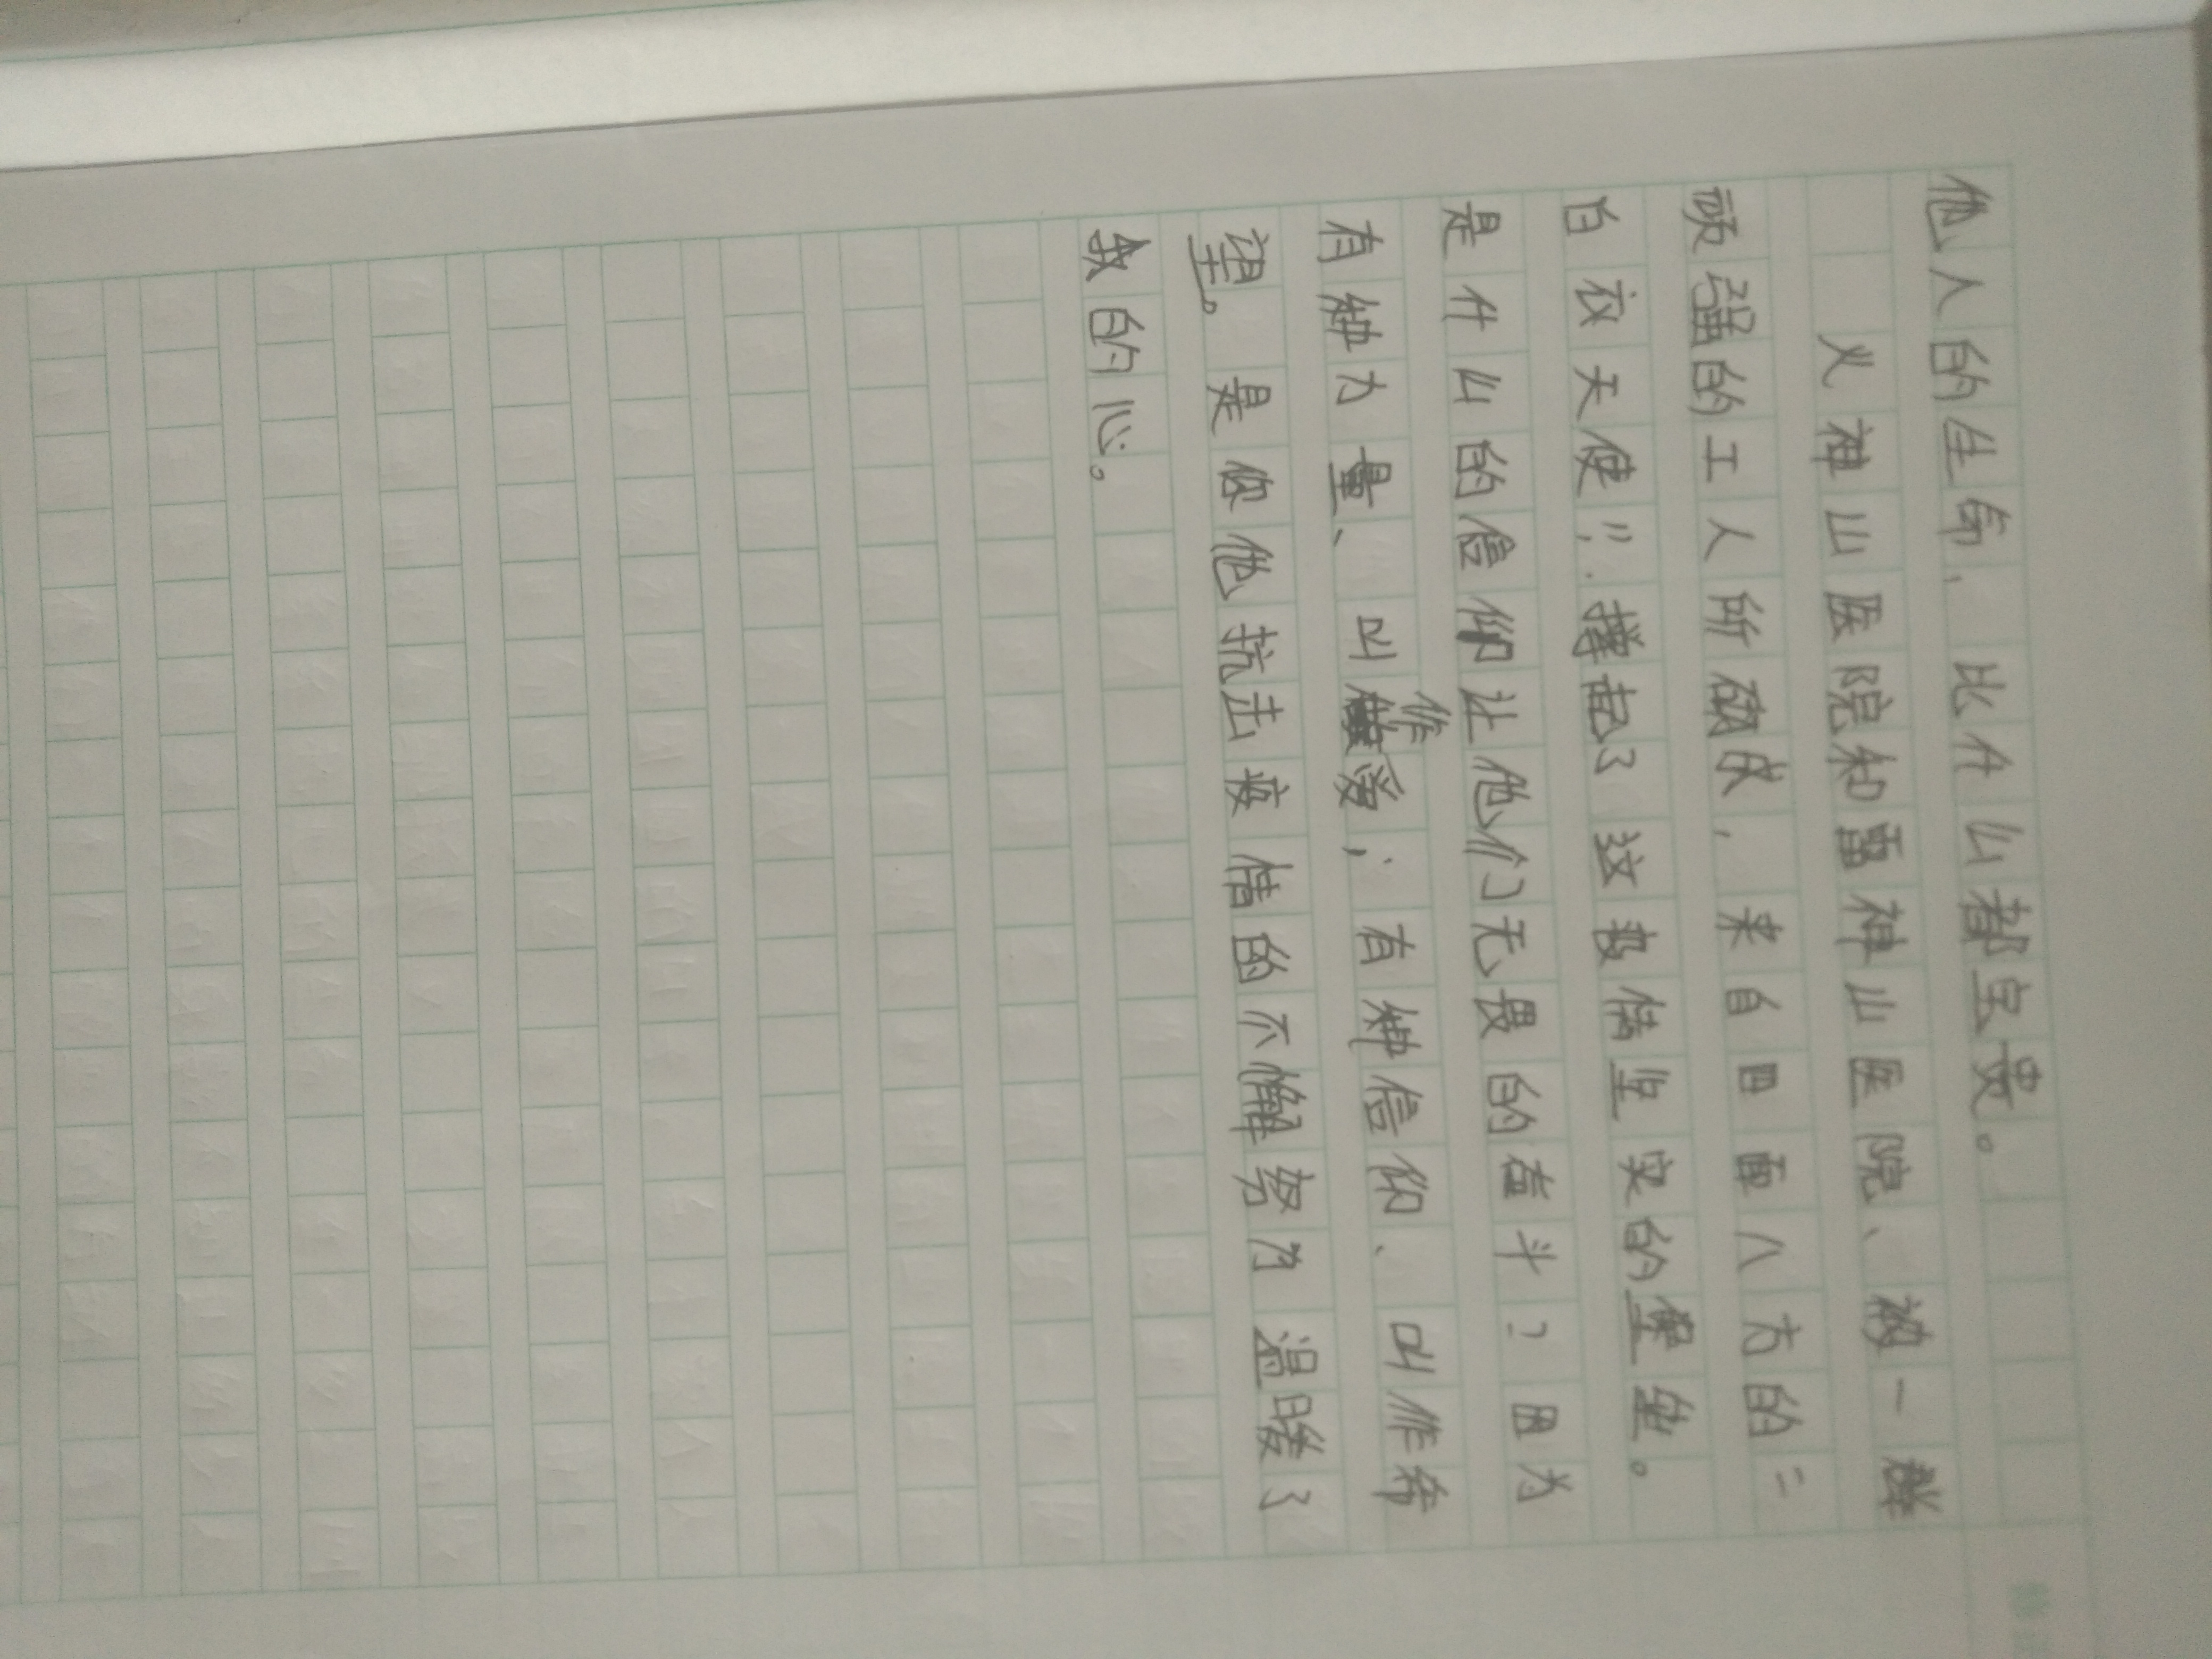 他人的生命，比什么都宝贵。
火神山医院和雷神山医院、被一群
顽强的工人所砌成，来自四面八方的“
白衣天使”.撑起了这救坚实的堡垒。
是什么的信仰让他们无畏的奋斗？因为
有种力量、叫作爱；有种信仰、叫作希
望。是你他抗击疫情的不懈努力温暖了
我的心。